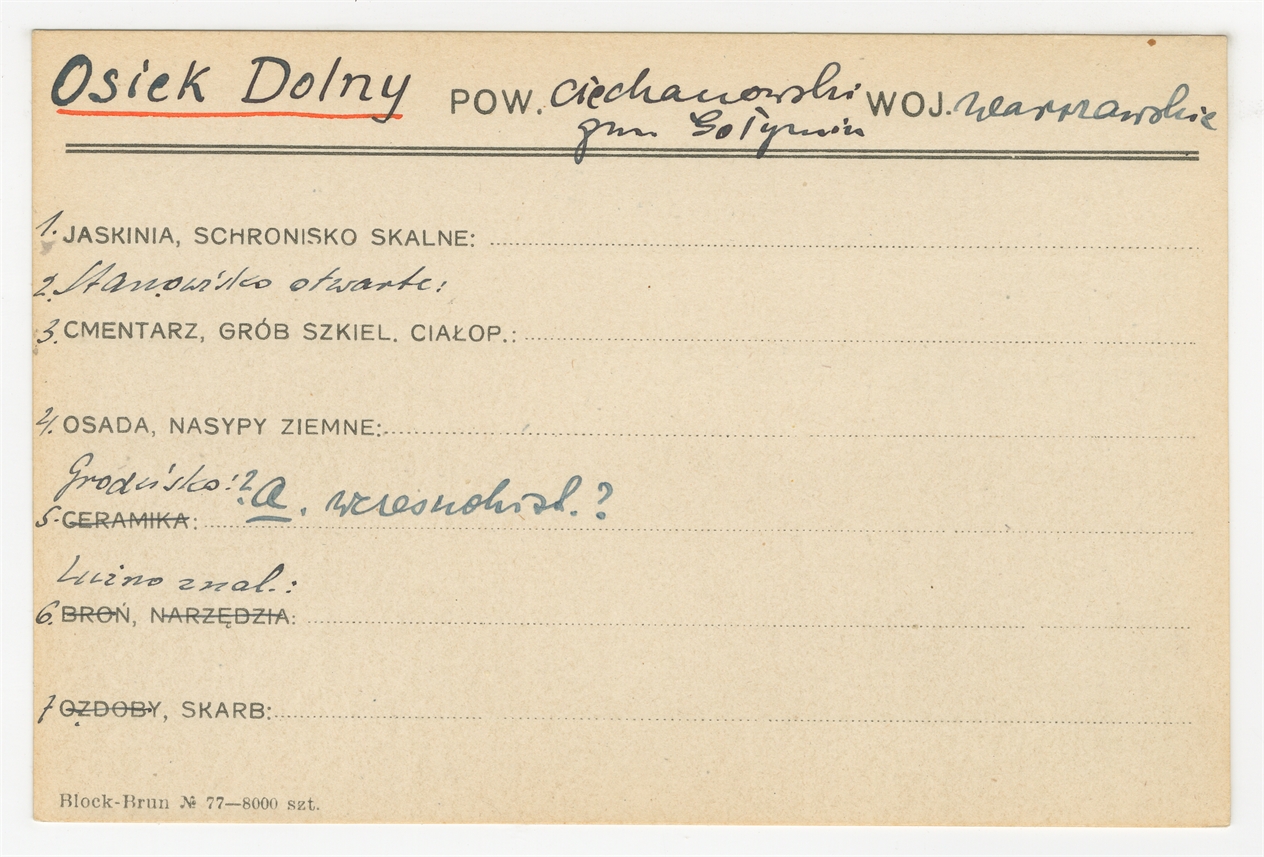 Osiek Dolny POW. ciechanowski WOJ. warszawskie
gm. Gołymin
1. JASKINIA, SCHRONISKO SKALNE:
2. Stanowisko otwarte:
3. CMENTARZ, GRÓB SZKIEL. CIAŁOP.:
4. OSADA, NASYPY ZIEMNE:
Grodzisko:? a. wczesnohist.?
5. CERAMIKA:
Luźno znal.:
6. BROŃ, NARZĘDZIA:
7 OZDOBY, SKARB:
Block-Brun № 77—8000 szt.